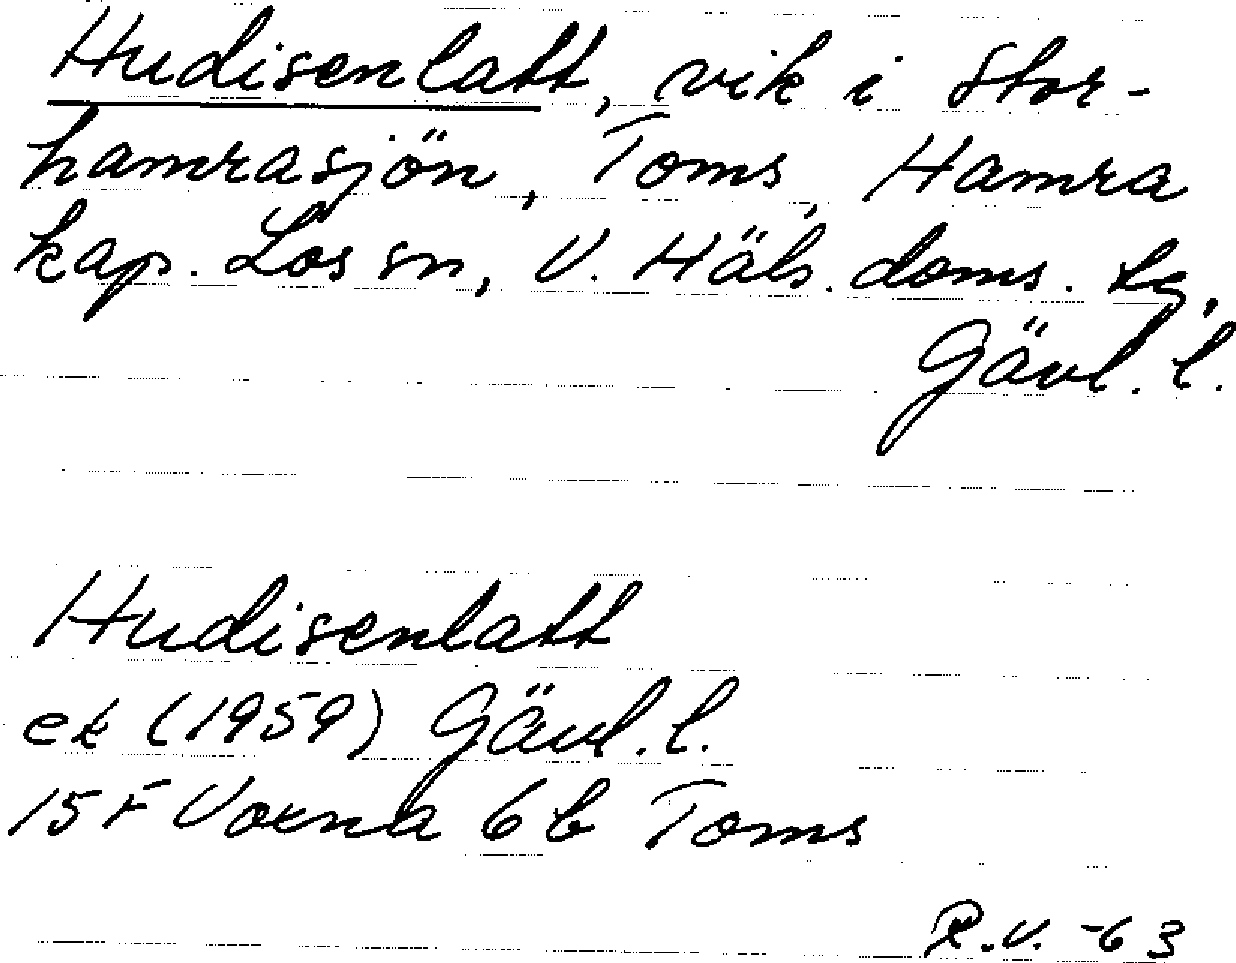 Hudisenlatt, vik i Stor-
hamrasjön, Toms, Hamra
kap. Los sn, V. Häls. doms. tg,
Gävl. l.
Hudisenlatt
ek (1959) Gävl. l.
15 F Voxna 6 b Toms
R.V. -63